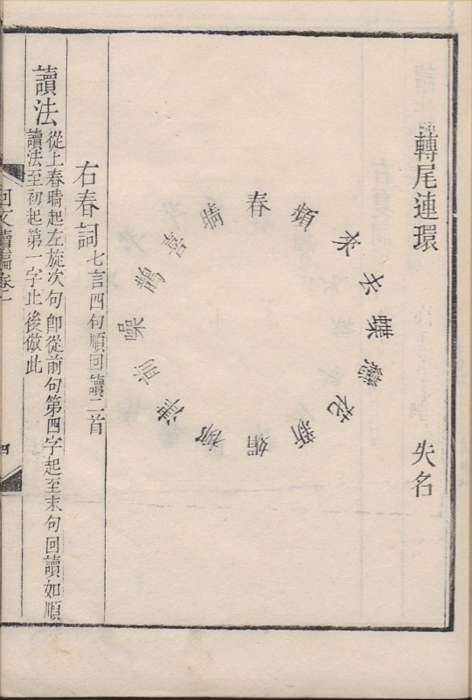 轉尾連環
失名
春晴喜鵲噪前津柳媚新花戀蝶去來頻
右春詞 七言四句順回讀二首
讀法 從上春晴起左旋次句即從前句第四字起至末句回讀如順
讀法至初起第一字止後倣此
回文續編卷